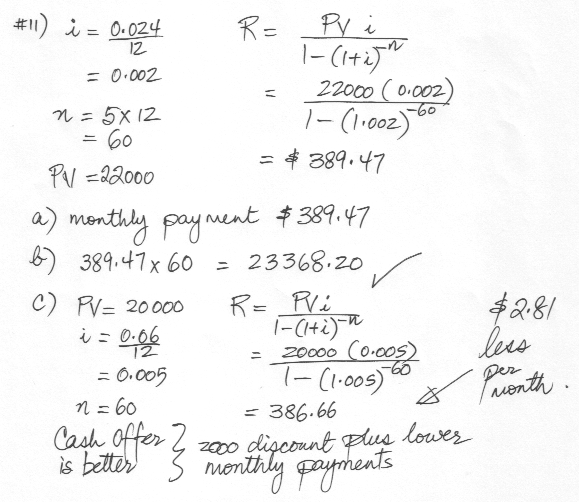 #11) i = 0.024/12
= 0.002
n = 5x12
= 60
PV = 22000
R = PV i / 1-(1+i)^-n
= 22000 (0.002) / 1-(1.002)^-60
= $ 389.47
a) monthly payment $ 389.47
b) 389.47 x 60 = 23368.20 ✓
c) PV = 20000
i = 0.06/12
= 0.005
n = 60
R = PV i / 1-(1+i)^-n
= 20000 (0.005) / 1-(1.005)^-60
= 386.66
$2.81
less
per
month.
Cash Offer } 2000 discount plus lower
is better } monthly payments